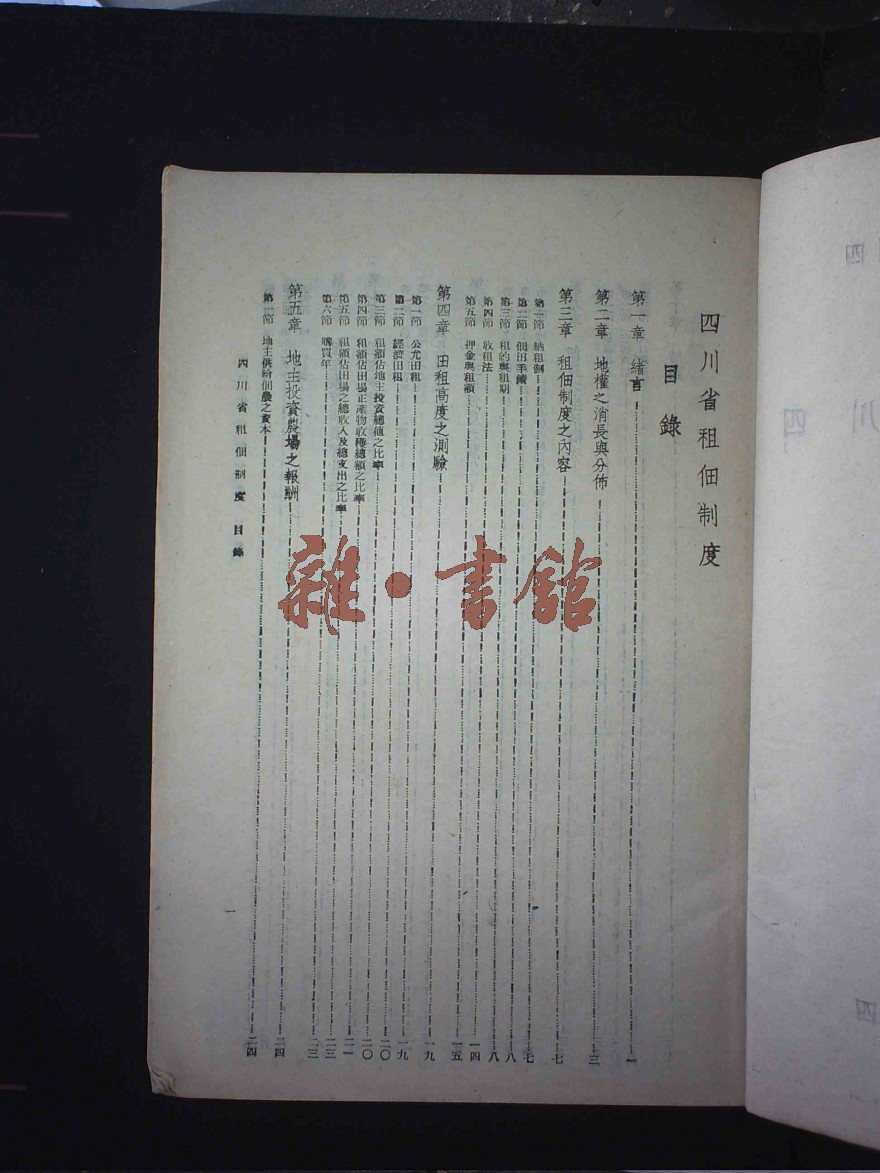 四川省租佃制度
目錄
第一章 緒言 一
第二章 地權之消長與分佈 三
第三章 租佃制度之內容 七
第一節 納租制 七
第二節 佃田手續 八
第三節 租約與租期 八
第四節 收租法 一四
第五節 押金與租額 一五
第四章 田租高度之測驗 一九
第一節 公允田租 一九
第二節 經濟田租 二〇
第三節 租額佔地主投資總值之比率 二〇
第四節 租額佔田場正產物收穫總額之比率 二一
第五節 租額佔田場之總收入及總支出之比率 二三
第六節 購買年 二三
第五章 地主投資農場之報酬 二四
第一節 地主供給佃農之資本 二四
四川省租佃制度 目錄
一
雜·書館